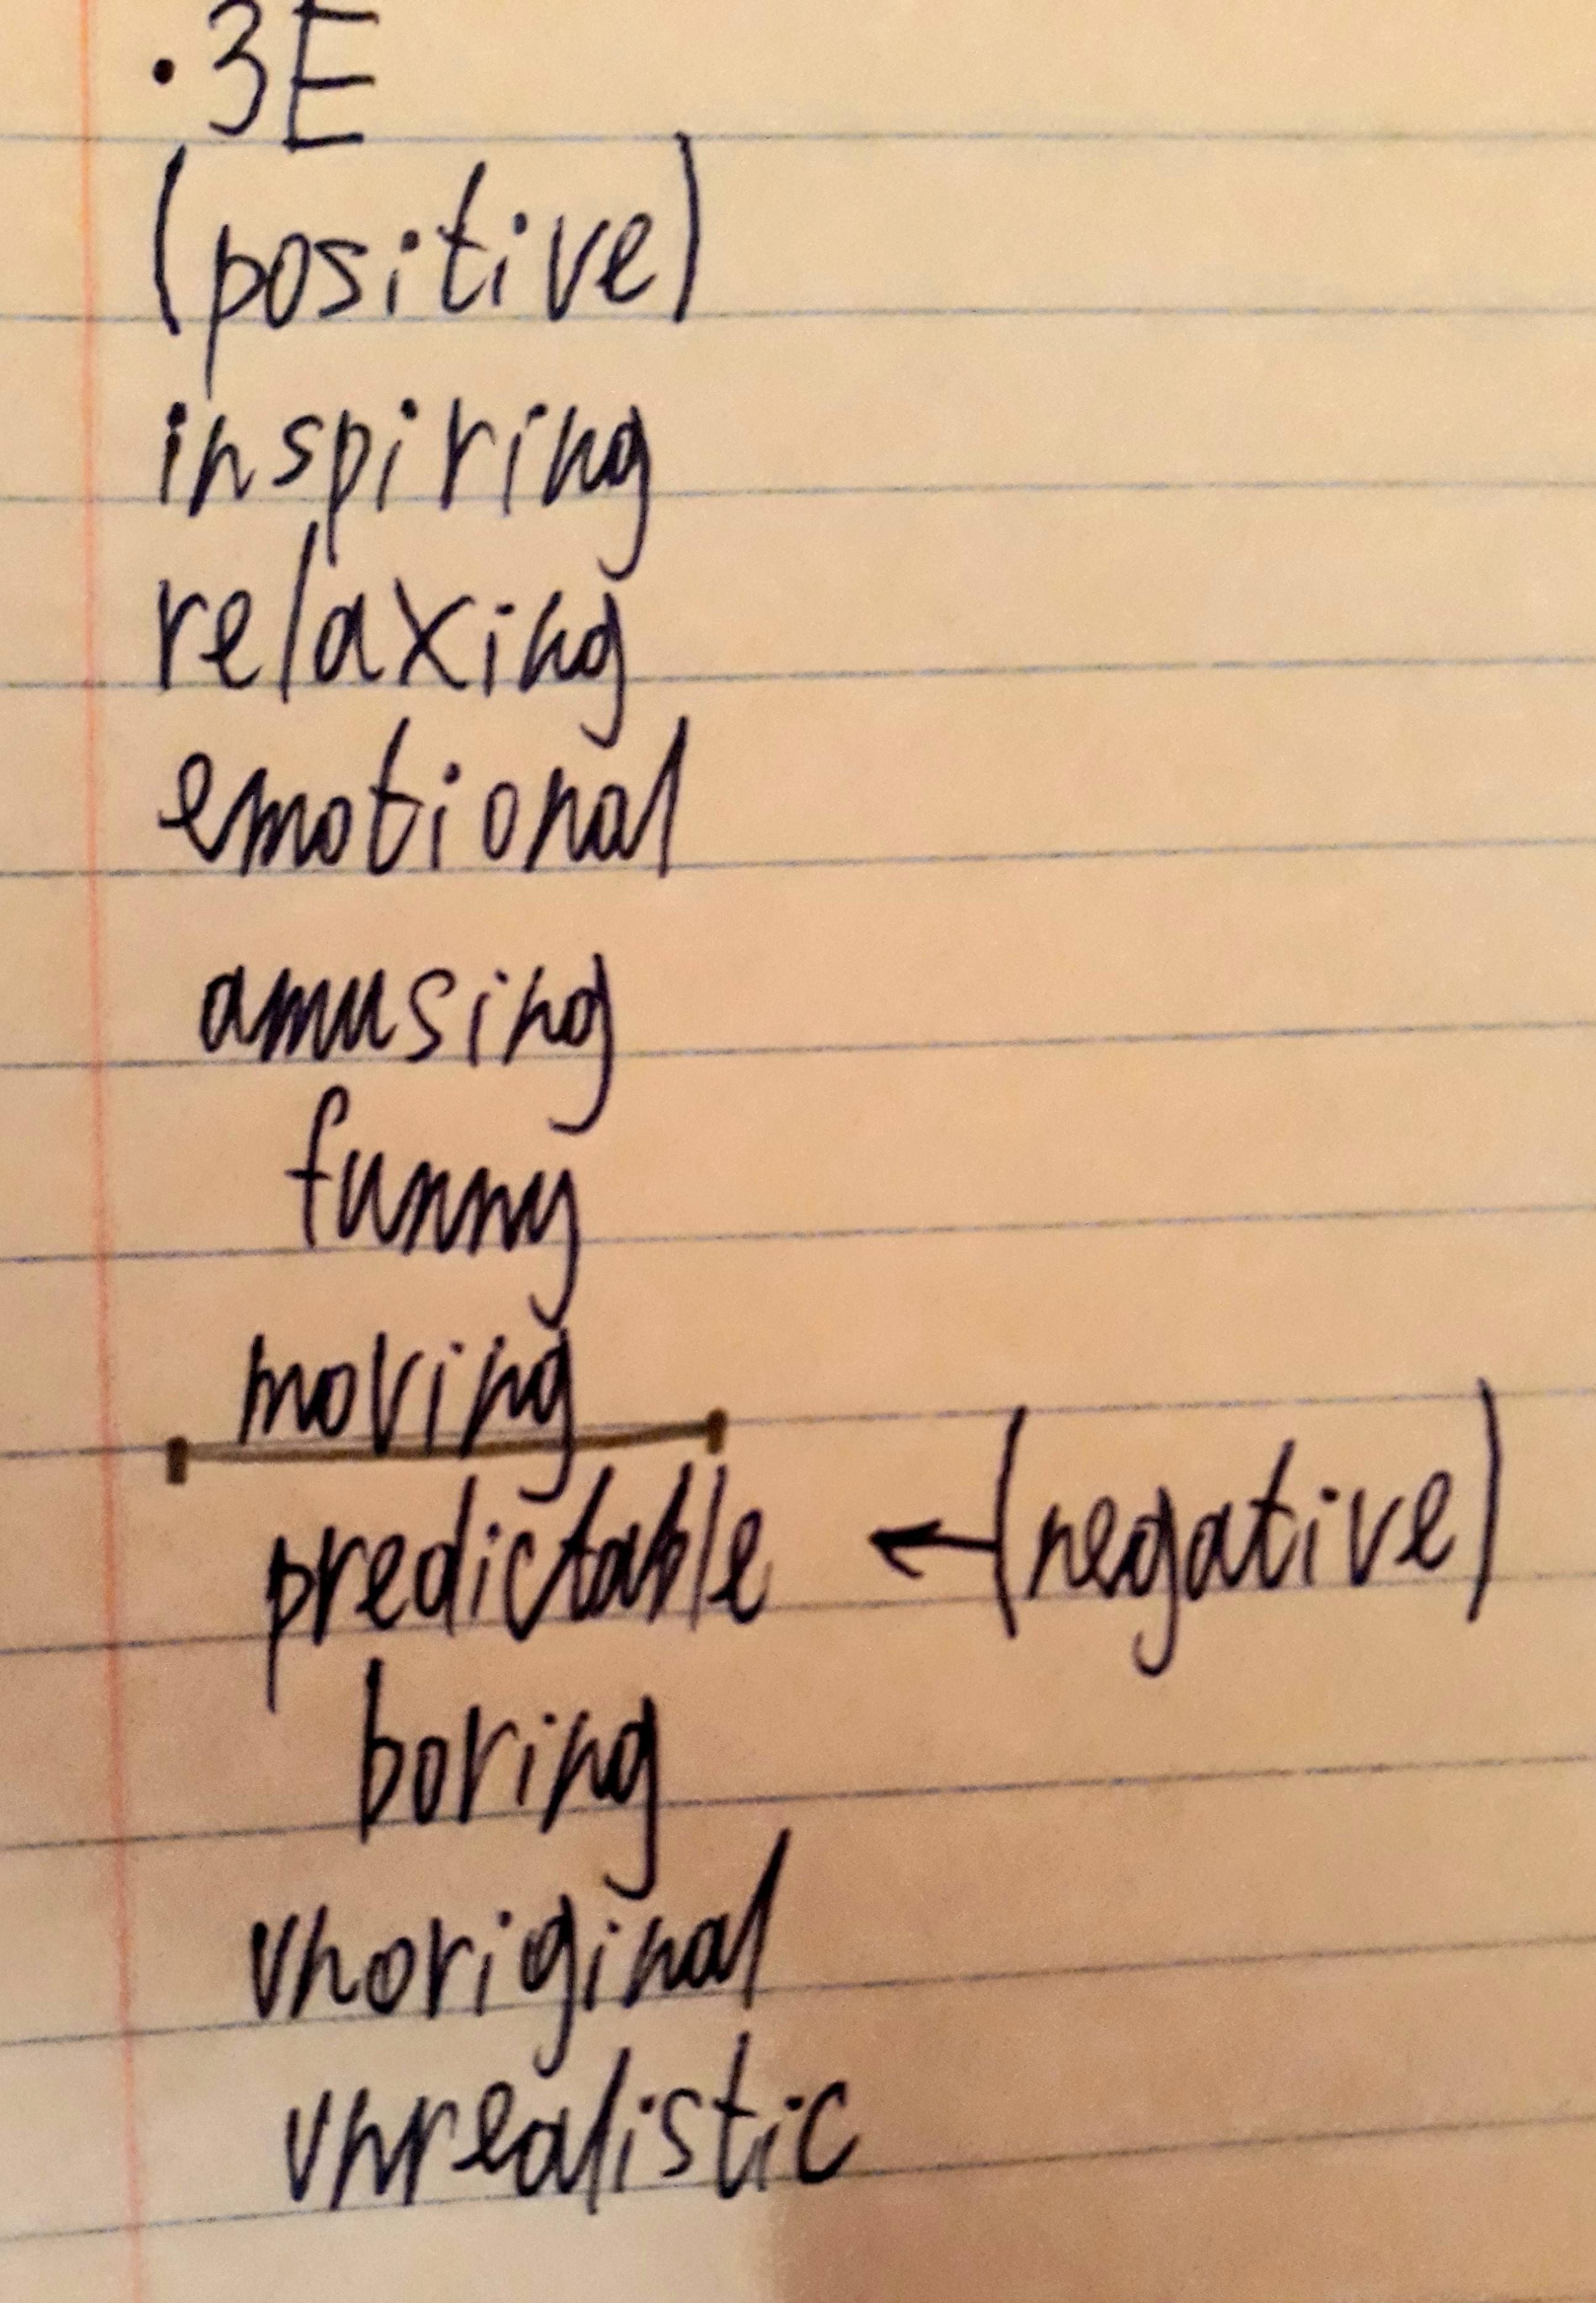 ·3E
(positive)
inspiring
relaxing
emotional
amusing
funny
moving
predictable ←(negative)
boring
unoriginal
unrealistic